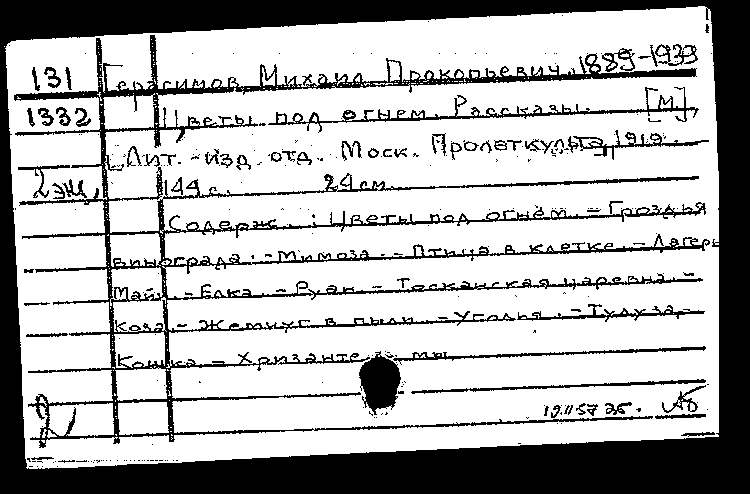 131 Герасимов, Михаил Прокопьевич, 1889-1939
1332 Цветы под огнем. Рассказы. [М],
"Лит.-изд. отд. Моск. Пролеткульта", 1919.
2 экз, 144 с. 24 см.
Содерж.: Цветы под огнём. - Гроздья
винограда. - Мимоза. - Птица в клетке. - Лагерь
Майи. - Елка. - Руан. - Тосканская царевна. -
Коза - Жемчуг в пыли. - Уголья. - Тулуза. -
Кошка. - Хризантемы.
2